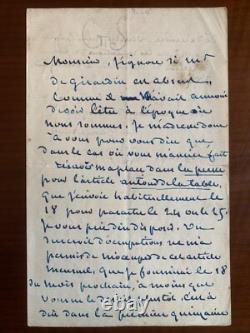 Monsieur, j'ignore si Mr
de Girardin est absent
comme il m'avait annoncé
devoir l'être à l'époque où
nous sommes. Je m'adresse donc
à vous pour vous dire que
dans le cas où vous m'auriez fait
réserver ma place dans la presse
pour l'article autour de la table,
que j'envoie habituellement le
18 pour paraître le 24 ou le 25,
je vous prie d'en disposer. Un
surcroît d'occupations ne m'a
permis de m'occuper de cet article
mensuel, que je fournirai le 18
du mois prochain, à moins que
vous ne le désiriez plutôt, c'est à
dire dans la première quinzaine